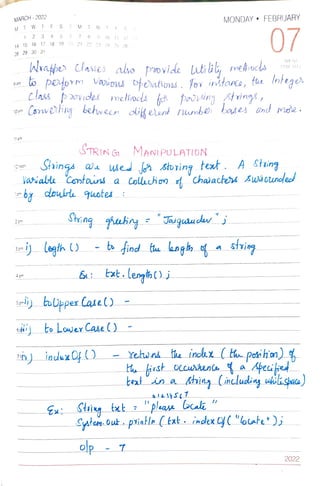 MARCH - 2022
MONDAY • FEBRUARY
M T W T F S S M T W T F S S
1 2 3 4 5 6
14 15 16 17 18 19
28 29 30 31
07
Wrapper Classes also provide Utility methods
to perform various operations. For instance, the Integer
class provides methods for parsing strings,
Converting between different number bases and more.
STRING MANIPULATION
Strings are used for storing text. A String
variable Contains a collection of characters surrounded
by double quotes :
String greeting = "Jaigurudev" ;
i) legth () - to find the length of a string
Ex: txt.length() ;
ii) toUpper Case () -
iii) to Lower Case () -
iv) index Of () - returns the index ( the position) of
the first occurrence of a specified
text in a string (including whitespace)
01234567
Ex: String txt = "please locate "
System.out.println ( txt . indexOf( "locate" ) );
o/p - 7
2022